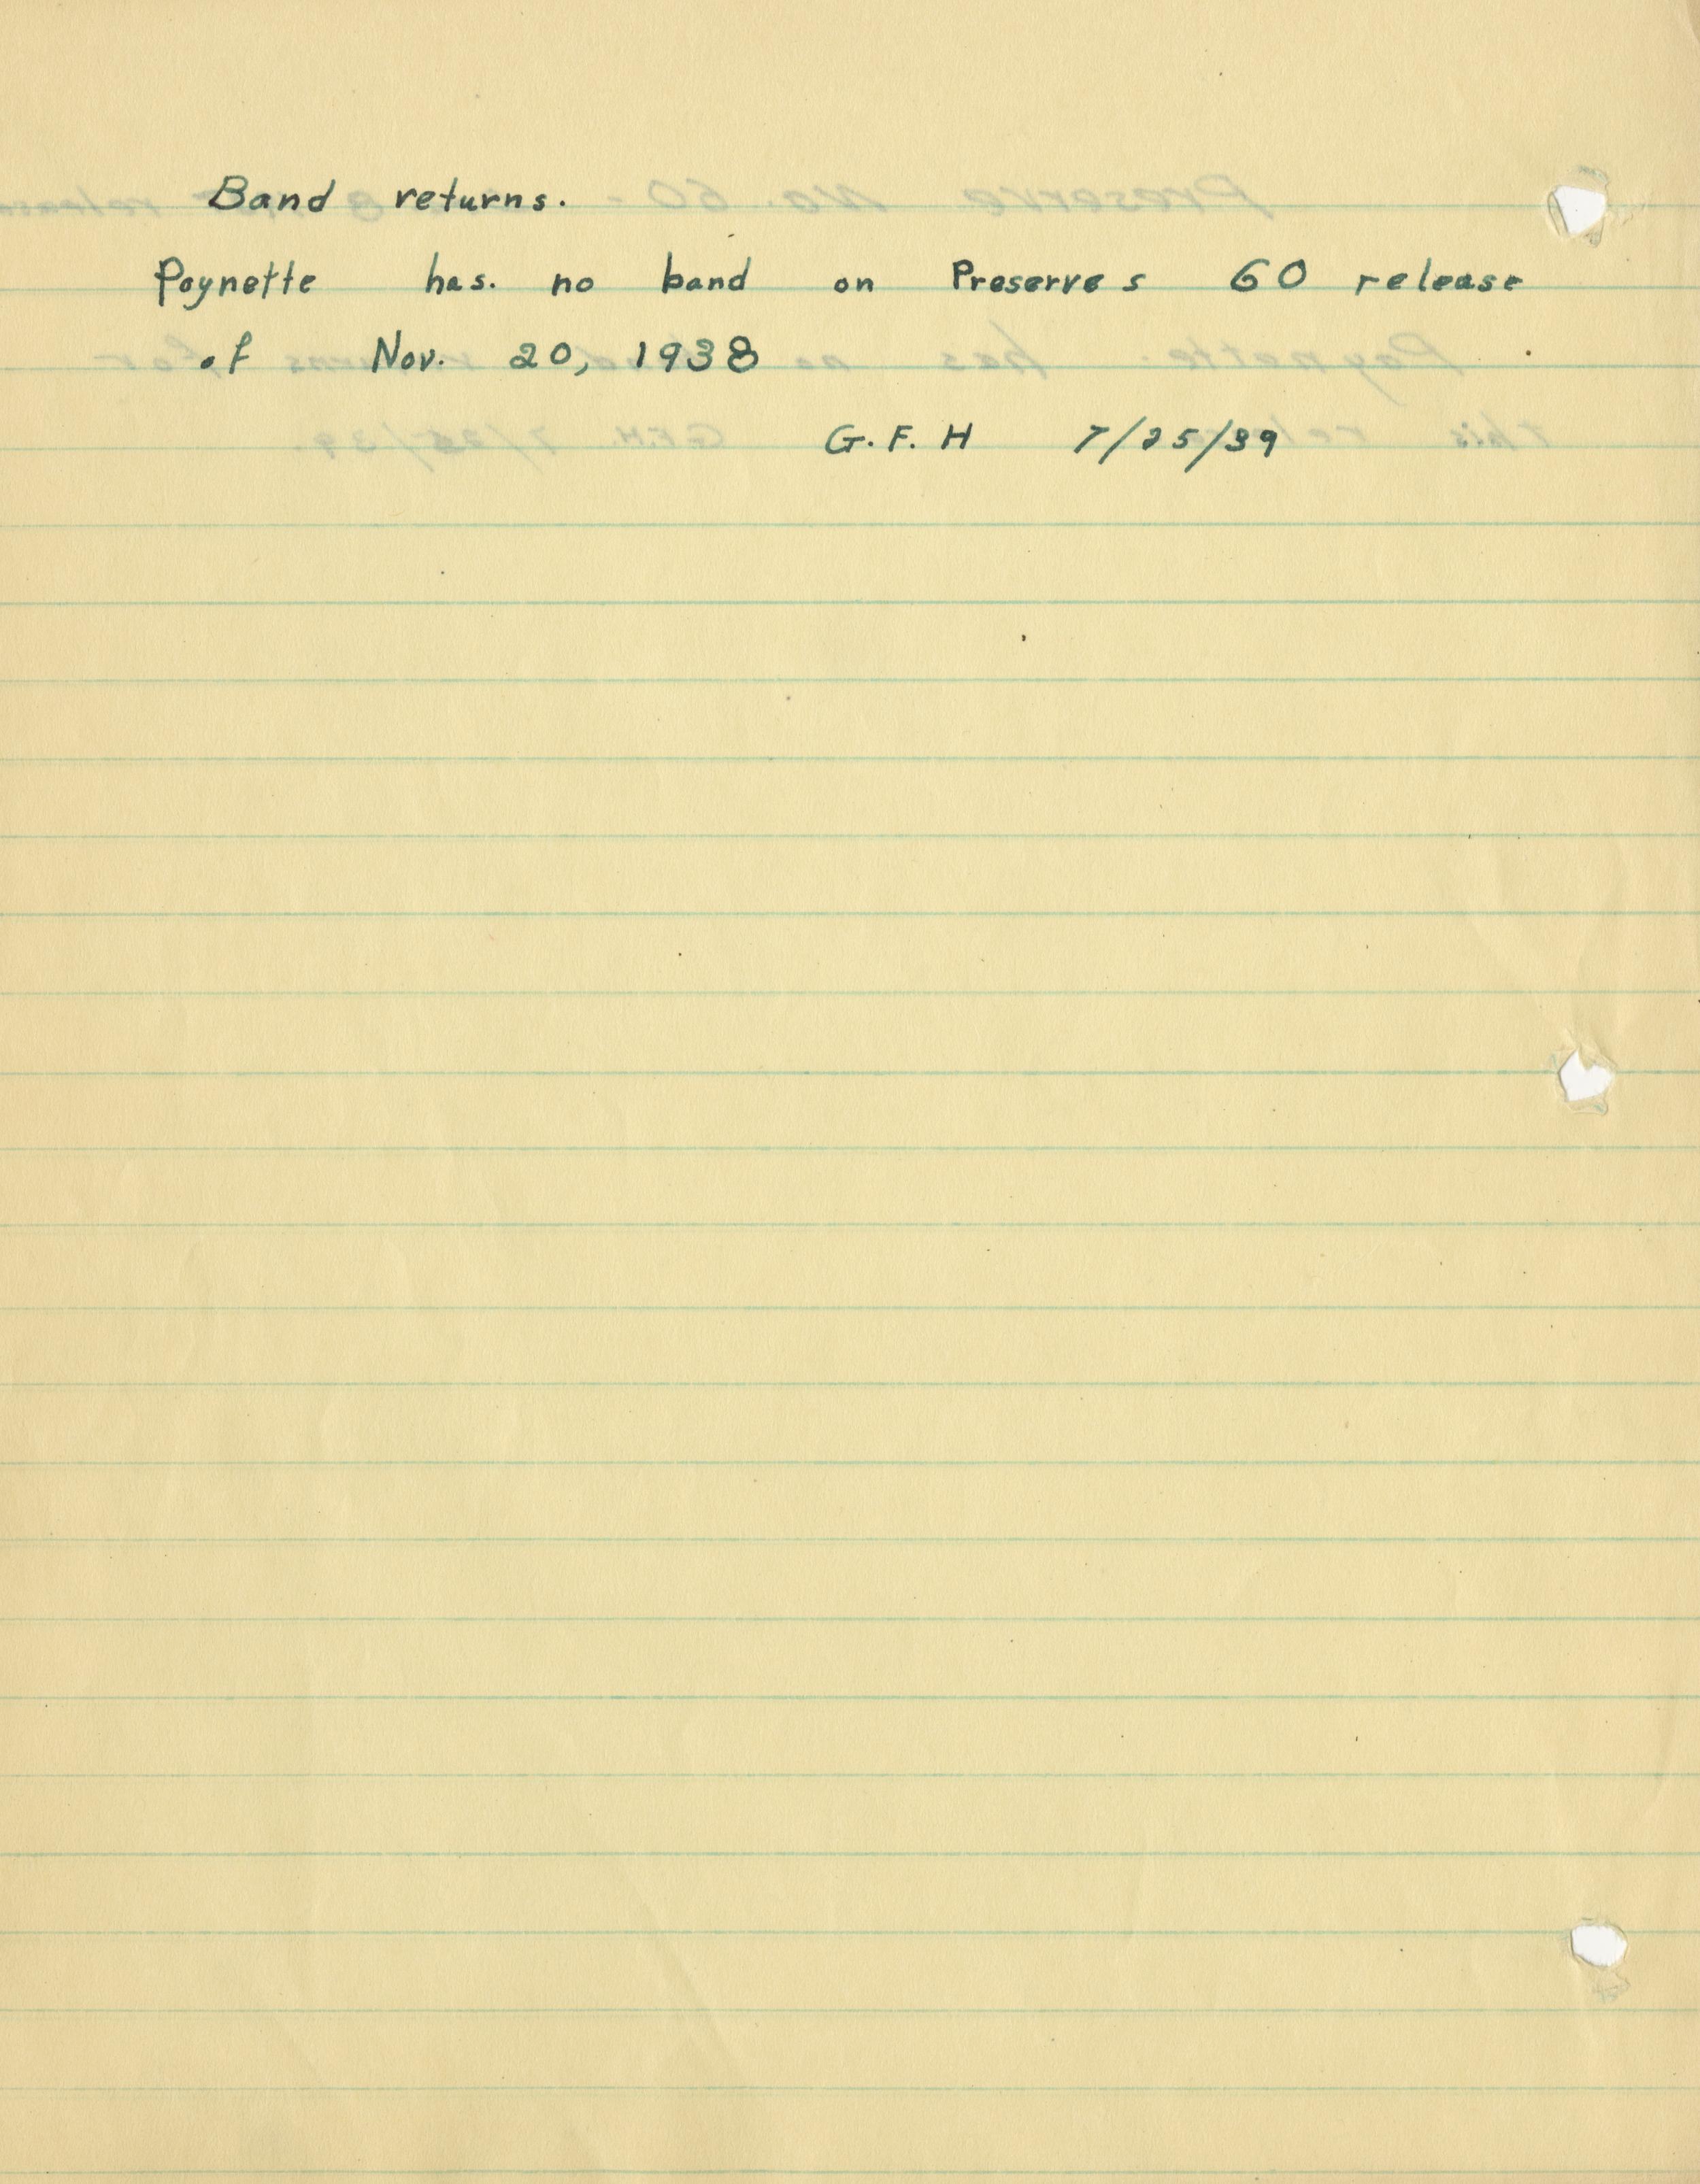 Band returns.
Poynette has. no band on Preserves 60 release
of Nov. 20, 1938
G. F. H 7/25/39